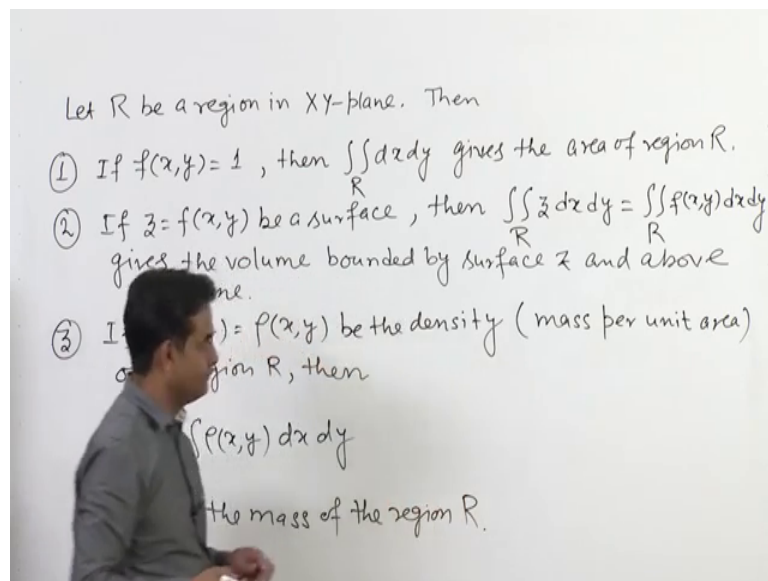 Let R be a region in XY-plane. Then
① If f(x,y) = 1, then ∬ dxdy gives the area of region R.
R
② If z = f(x,y) be a surface, then ∬ z dxdy = ∬ f(x,y) dxdy
R R
gives the volume bounded by surface z and above
ne.
③ I ) = ρ(x,y) be the density (mass per unit area)
o gion R, then
∫ρ(x,y) dx dy
the mass of the region R.